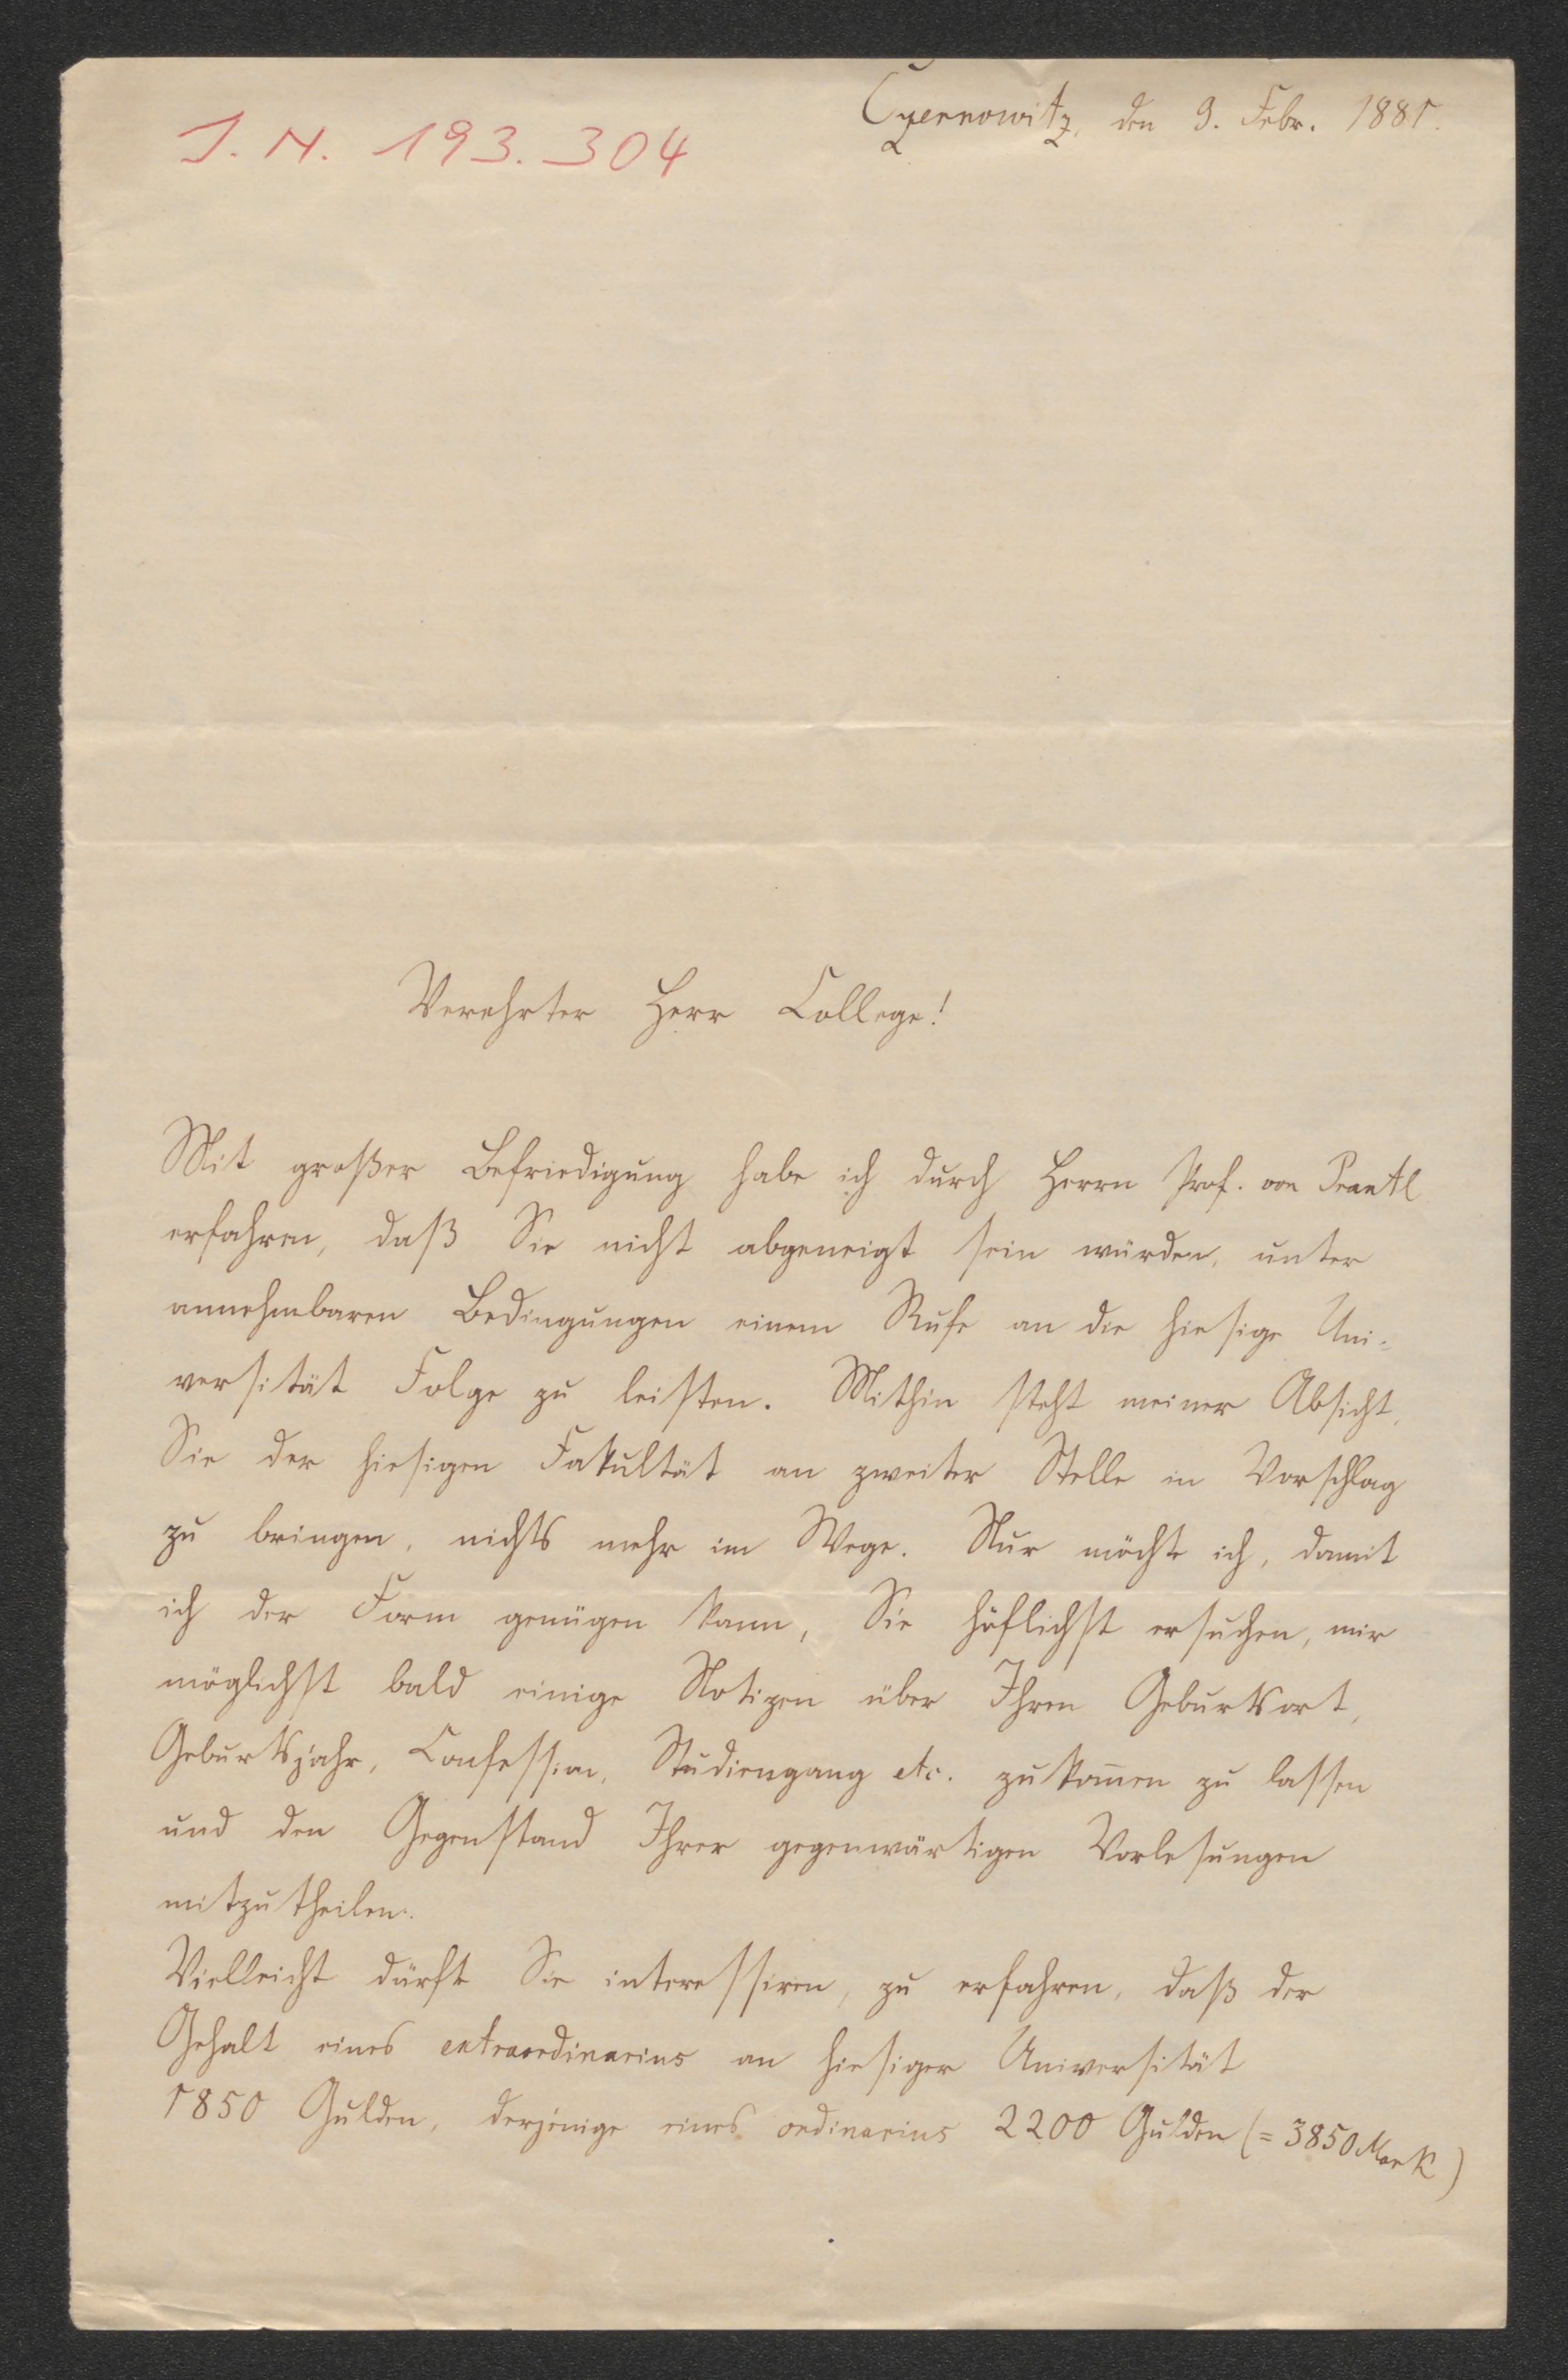 J. N. 193.304
Czernowitz, den 9. Febr. 1881.
Verehrter Herr College!
Mit großer Befriedigung habe ich durch Herrn Prof. von Prantl
erfahren, daß Sie nicht abgeneigt sein würden, unter
annehmbaren Bedingungen einem Rufe an die hiesige Uni-
versität Folge zu leisten. Mithin steht meiner Absicht,
Sie der hiesigen Fakultät an zweiter Stelle in Vorschlag
zu bringen, nichts mehr im Wege. Nur möchte ich, damit
ich der Form genügen kann, Sie höflichst ersuchen, mir
möglichst bald einige Notizen über Ihren Geburtsort,
Geburtsjahr, Confession, Studiengang etc. zukom̄en zu lassen
und den Gegenstand Ihrer gegenwärtigen Vorlesungen
mitzutheilen.
Vielleicht dürfte Sie interessiren, zu erfahren, daß der
Gehalt eines extraordinarius an hiesiger Universität
1850 Gulden, derjenige eines ordinarius 2200 Gulden (= 3850 Mark)